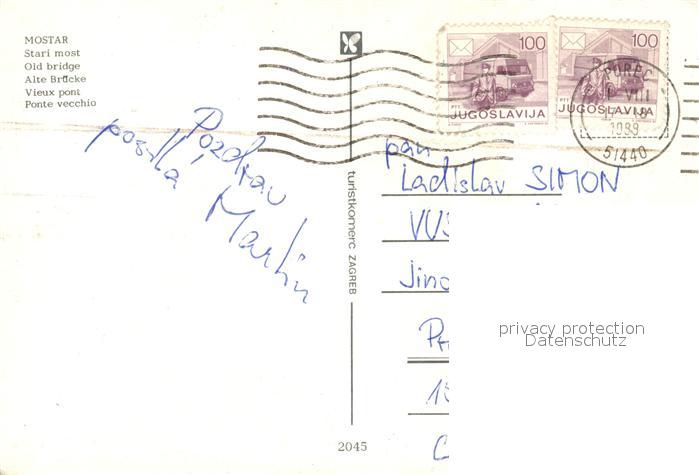 MOSTAR
Stari most
Old bridge
Alte Brücke
Vieux pont
Ponte vecchio
Pozdrav
posílá
Martin
turistkomerc ZAGREB
2045
100
PTT JUGOSLAVIJA
100
PTT JUGOSLAVIJA
POREČ
1989
51440
pan
Ladislav SIMON
privacy protection
Datenschutz